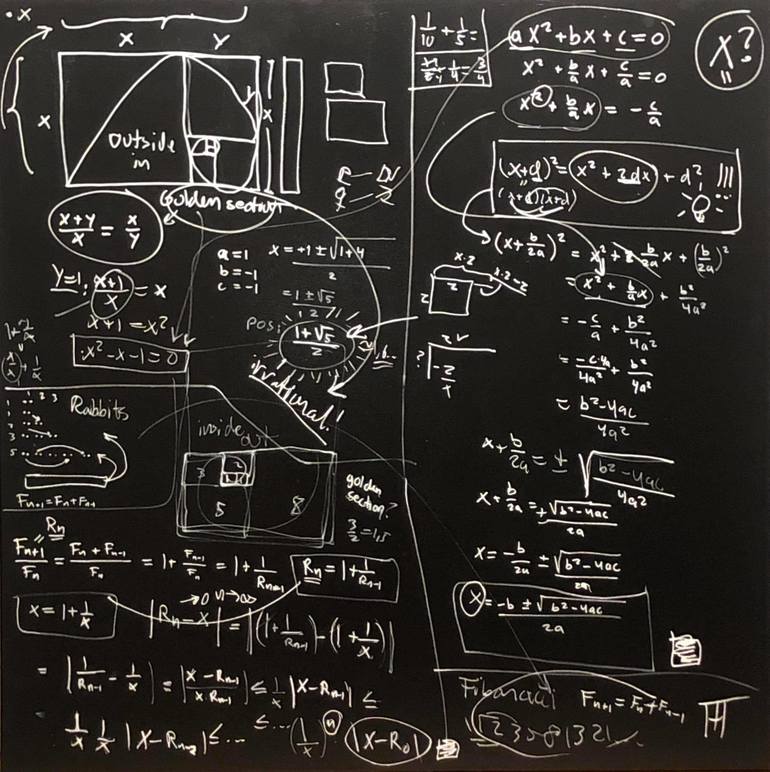 • X
X Y
X
X
outside
in
Golden section
(x+y)/x = x/y
Y=1: (x+1)/x = x
x+1 = x²
x²-x-1=0
a=1
b=-1
c=-1
x = +1 ± √1+4 / 2
= 1 ± √5 / 2
pos:
1+√5 / 2
irrational!
1 2 3
1
2
3
5
Rabbits
inside out
3 2
5 8
golden
section?
3/2 = 1,5
Rn
Fn+1/Fn = Fn + Fn-1 / Fn = 1 + Fn-1/Fn = 1 + 1/Rn-1
Rn = 1 + 1/Rn-1
x = 1 + 1/x
→0 n→∞
|Rn - x| = |(1 + 1/Rn-1) - (1 + 1/x)|
= |1/Rn-1 - 1/x| = |x - Rn-1 / x·Rn-1| ≤ 1/x |x - Rn-1| ≤
1/x 1/x |x - Rn-2| ≤ ... ≤ ... (1/x)ⁿ |x - R0|
1/10 + 1/5 =
1/4 = 3/4
ax² + bx + c = 0
x² + b/a x + c/a = 0
x² + b/a x = - c/a
x?
(x+d)² = x² + 2dx + d² !!!
(x+d)(x+d)
(x + b/2a)² = x² + 2 b/2a x + (b/2a)²
= x² + b/a x + b²/4a²
= - c/a + b²/4a²
= -c·4a/4a² + b²/4a²
= b² - 4ac / 4a²
x + b/2a = ± √ b² - 4ac / 4a²
x + b/2a = ± √b² - 4ac / 2a
x = - b/2a ± √b² - 4ac / 2a
x = -b ± √b² - 4ac / 2a
x·2
2
Fibonacci Fn+1 = Fn + Fn-1
1 2 3 5 8 13 21